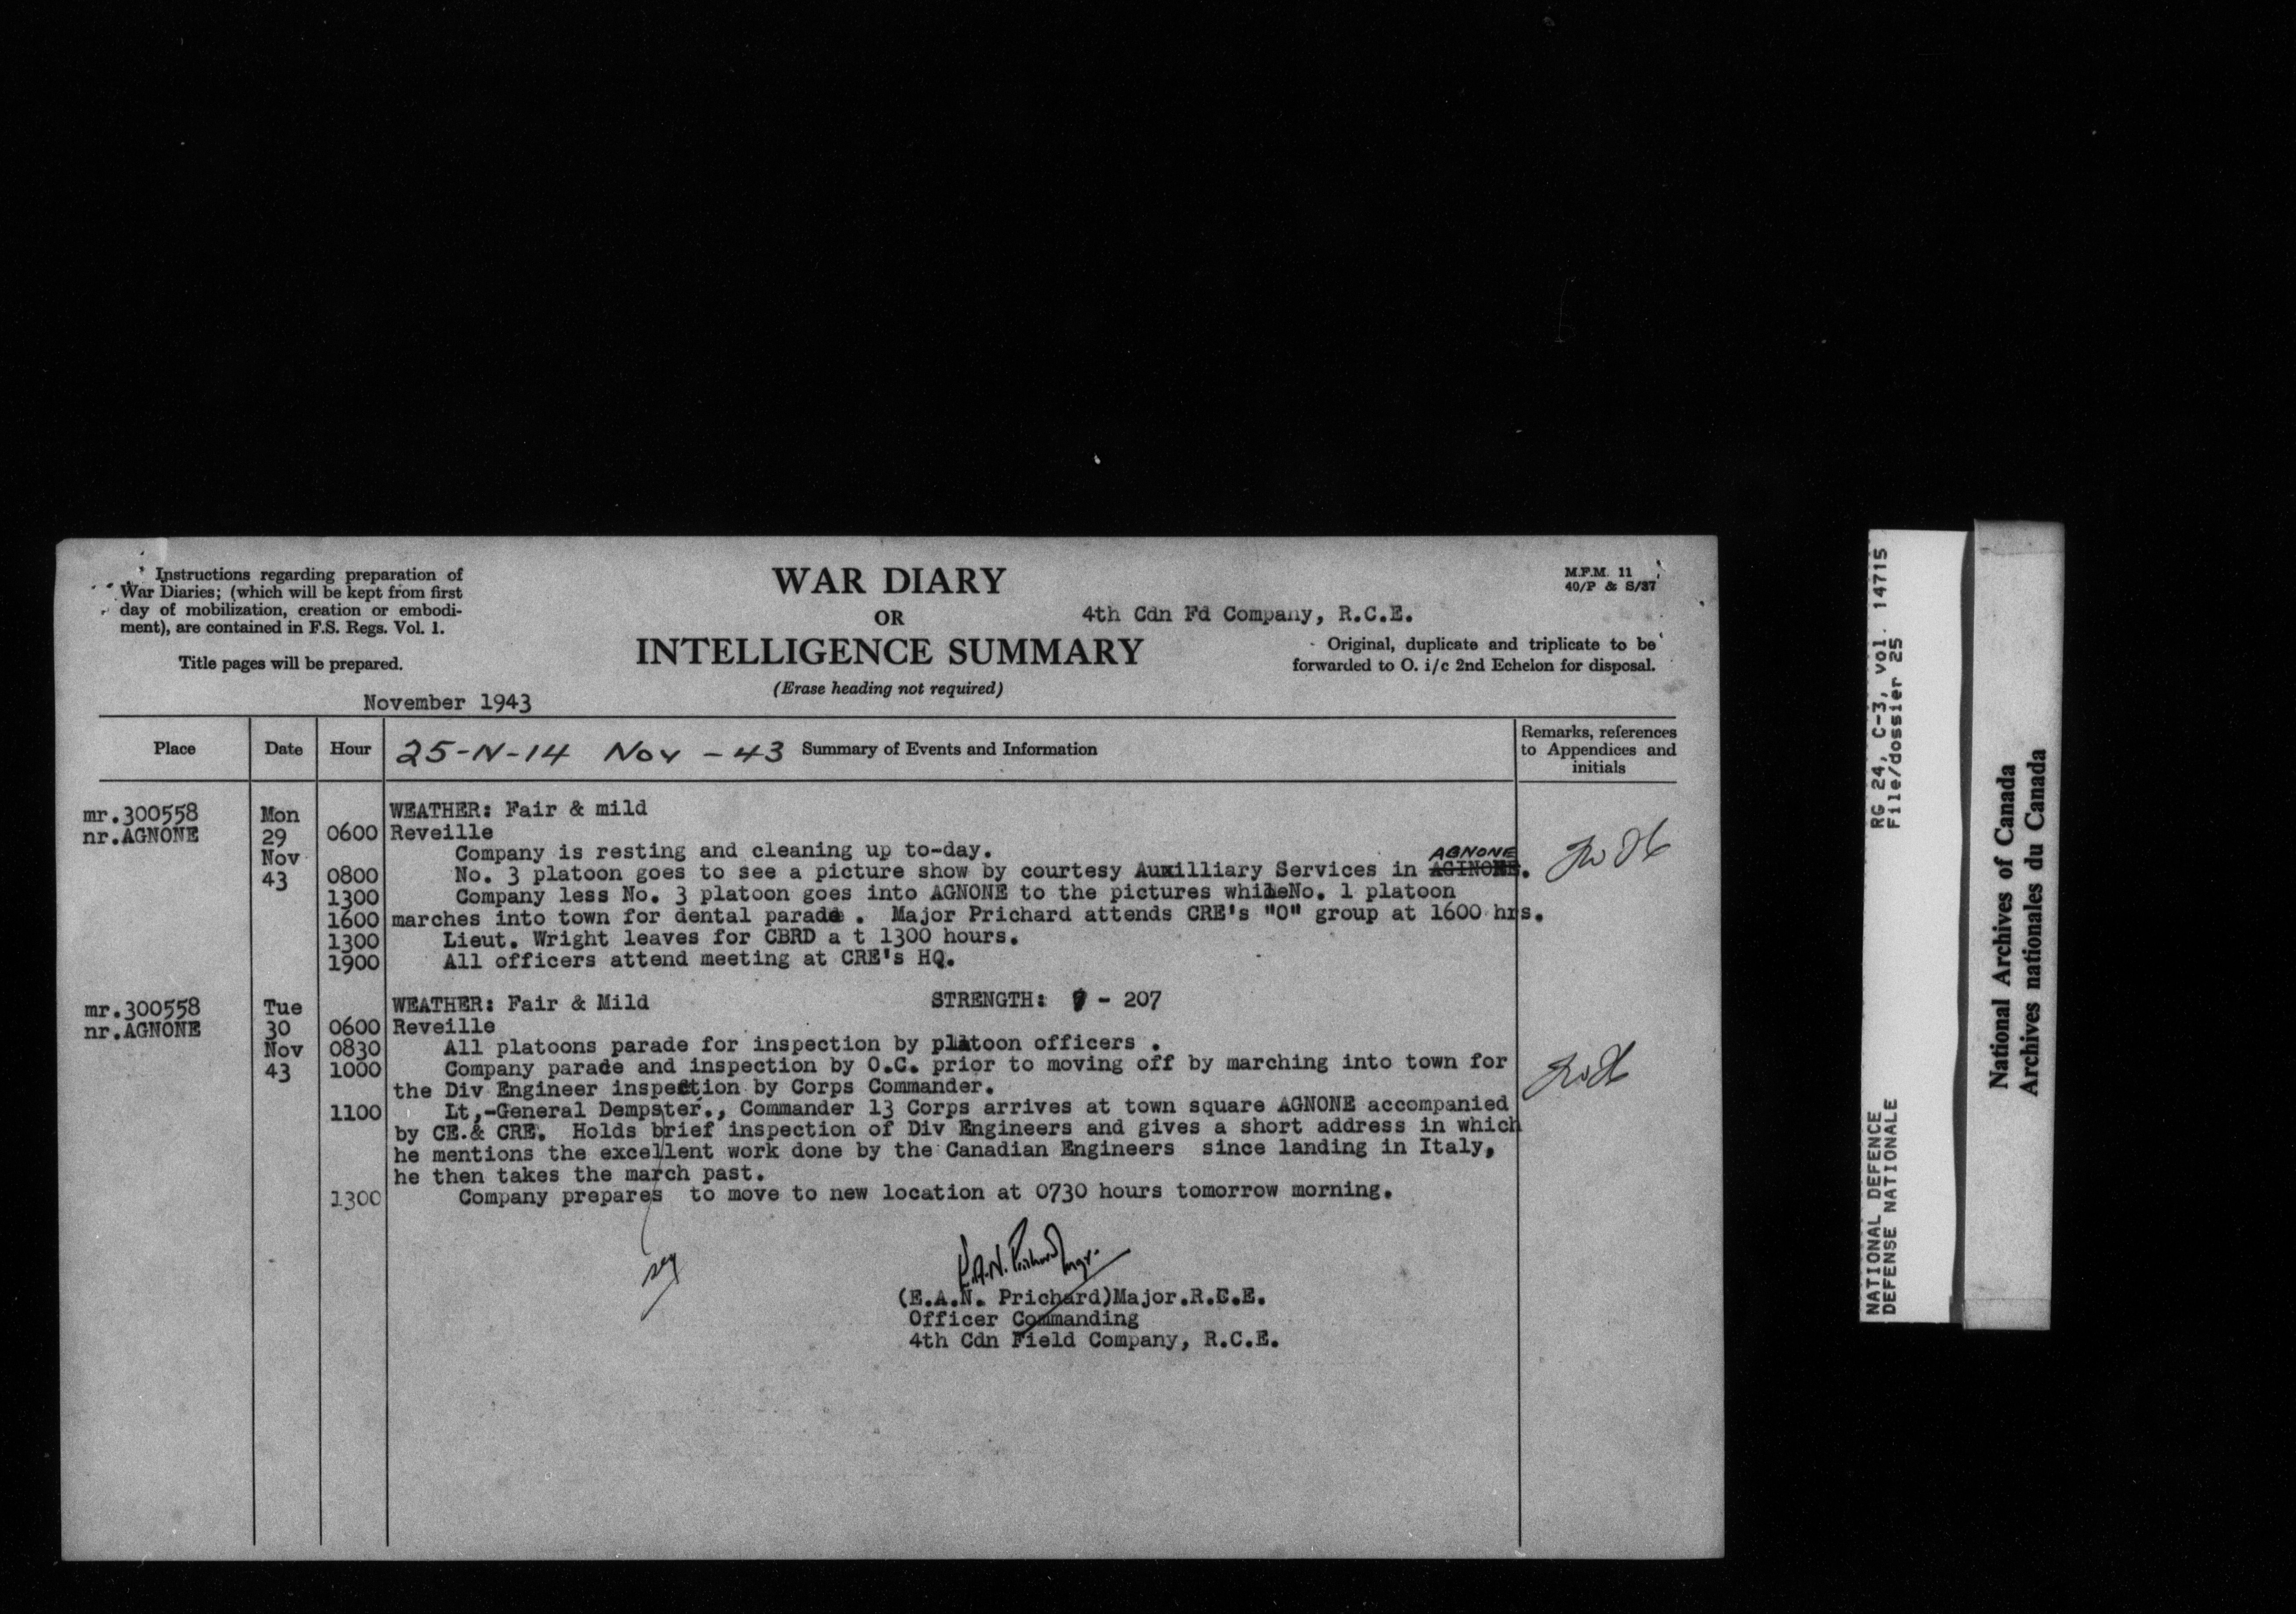 Instructions regarding preparation of
War Diaries; (which will be kept from first
day of mobilization, creation or embodi-
ment), are contained in F.S. Regs. Vol. 1.
Title pages will be prepared.
WAR DIARY
OR
INTELLIGENCE SUMMARY
(Erase heading not required)
4th Cdn Fd Company, R.C.E.
M.F.M. 11
40/P & S/37
Original, duplicate and triplicate to be
forwarded to O. i/c 2nd Echelon for disposal.
November 1943
Place Date Hour 25-N-14 Nov - 43 Summary of Events and Information Remarks, references
to Appendices and
initials
mr.300558 Mon WEATHER: Fair & mild
nr.AGNONE 29 0600 Reveille
Nov Company is resting and cleaning up to-day.
AGNONE
43 0800 No. 3 platoon goes to see a picture show by courtesy Auxilliary Services in AGINONE.
1300 Company less No. 3 platoon goes into AGNONE to the pictures whileNo. 1 platoon
1600 marches into town for dental parade . Major Prichard attends CRE's "O" group at 1600 hrs.
1300 Lieut. Wright leaves for CBRD a t 1300 hours.
1900 All officers attend meeting at CRE's HQ.
mr.300558 Tue WEATHER: Fair & Mild STRENGTH: - 207
nr.AGNONE 30 0600 Reveille
Nov 0830 All platoons parade for inspection by platoon officers .
43 1000 Company parade and inspection by O.C. prior to moving off by marching into town for
the Div Engineer inspection by Corps Commander.
1100 Lt,-General Dempster., Commander 13 Corps arrives at town square AGNONE accompanied
by CE.& CRE. Holds brief inspection of Div Engineers and gives a short address in which
he mentions the excellent work done by the Canadian Engineers since landing in Italy,
he then takes the march past.
1300 Company prepares to move to new location at 0730 hours tomorrow morning.
E.A.N. Prichard Major.
(E.A.N. Prichard)Major.R.C.E.
Officer Commanding
4th Cdn Field Company, R.C.E.
NATIONAL DEFENCE RG 24, C-3, vol. 14715
DEFENSE NATIONALE File/dossier 25
National Archives of Canada
Archives nationales du Canada